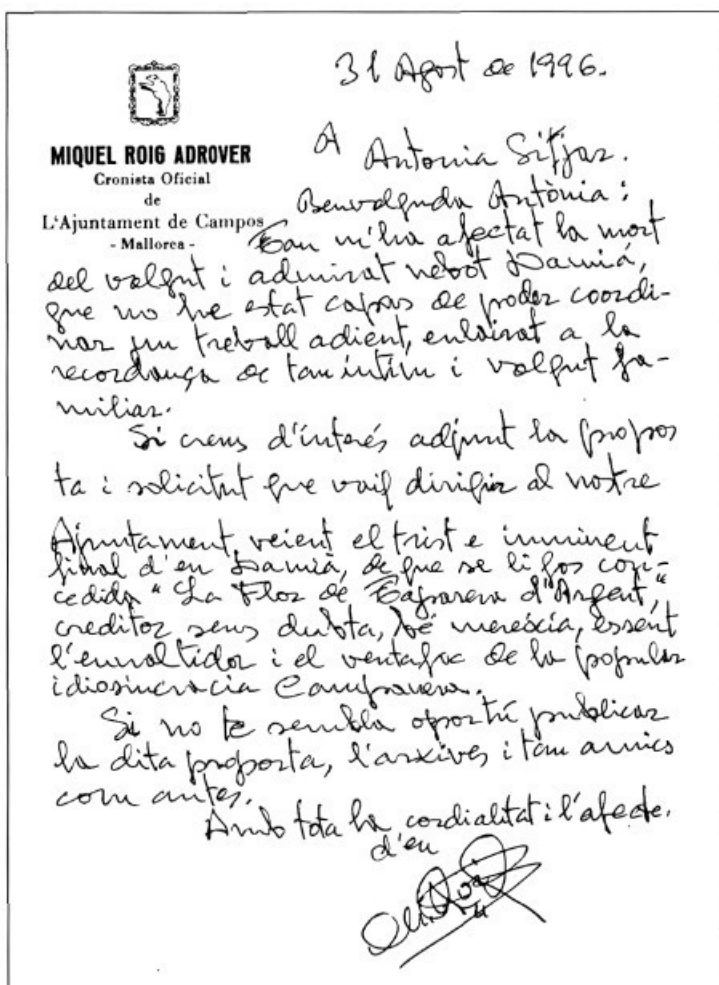 31 Agost de 1996.
MIQUEL ROIG ADROVER
Cronista Oficial
de
L'Ajuntament de Campos
- Mallorca -
A Antonia Sitjar.
Benvolguda Antònia:
Tan m'ha afectat la mort
del volgut i admirat nebot Damiá,
que no he estat capas de poder coordi-
nar un treball adient, enlairat a la
recordança de tan íntim i volgut fa-
miliar.
Si creus d'interés adjunt la propos
ta i solicitut que vaig dirigir al nostre
Ajuntament veient el trist e imminent
final d'en Damià, de que se li fos con-
cedida "La Flor de Taparera d'Argent",
creditor sens dubta, bé mereixia, essent
l'enaltidor i el de la popular
idiosincracia Campanera.
Si no te sembla oportú publicar
la dita proposta, l'arxives i tan amics
com antes.
Amb tota la cordialitat i l'afecte.
d'en